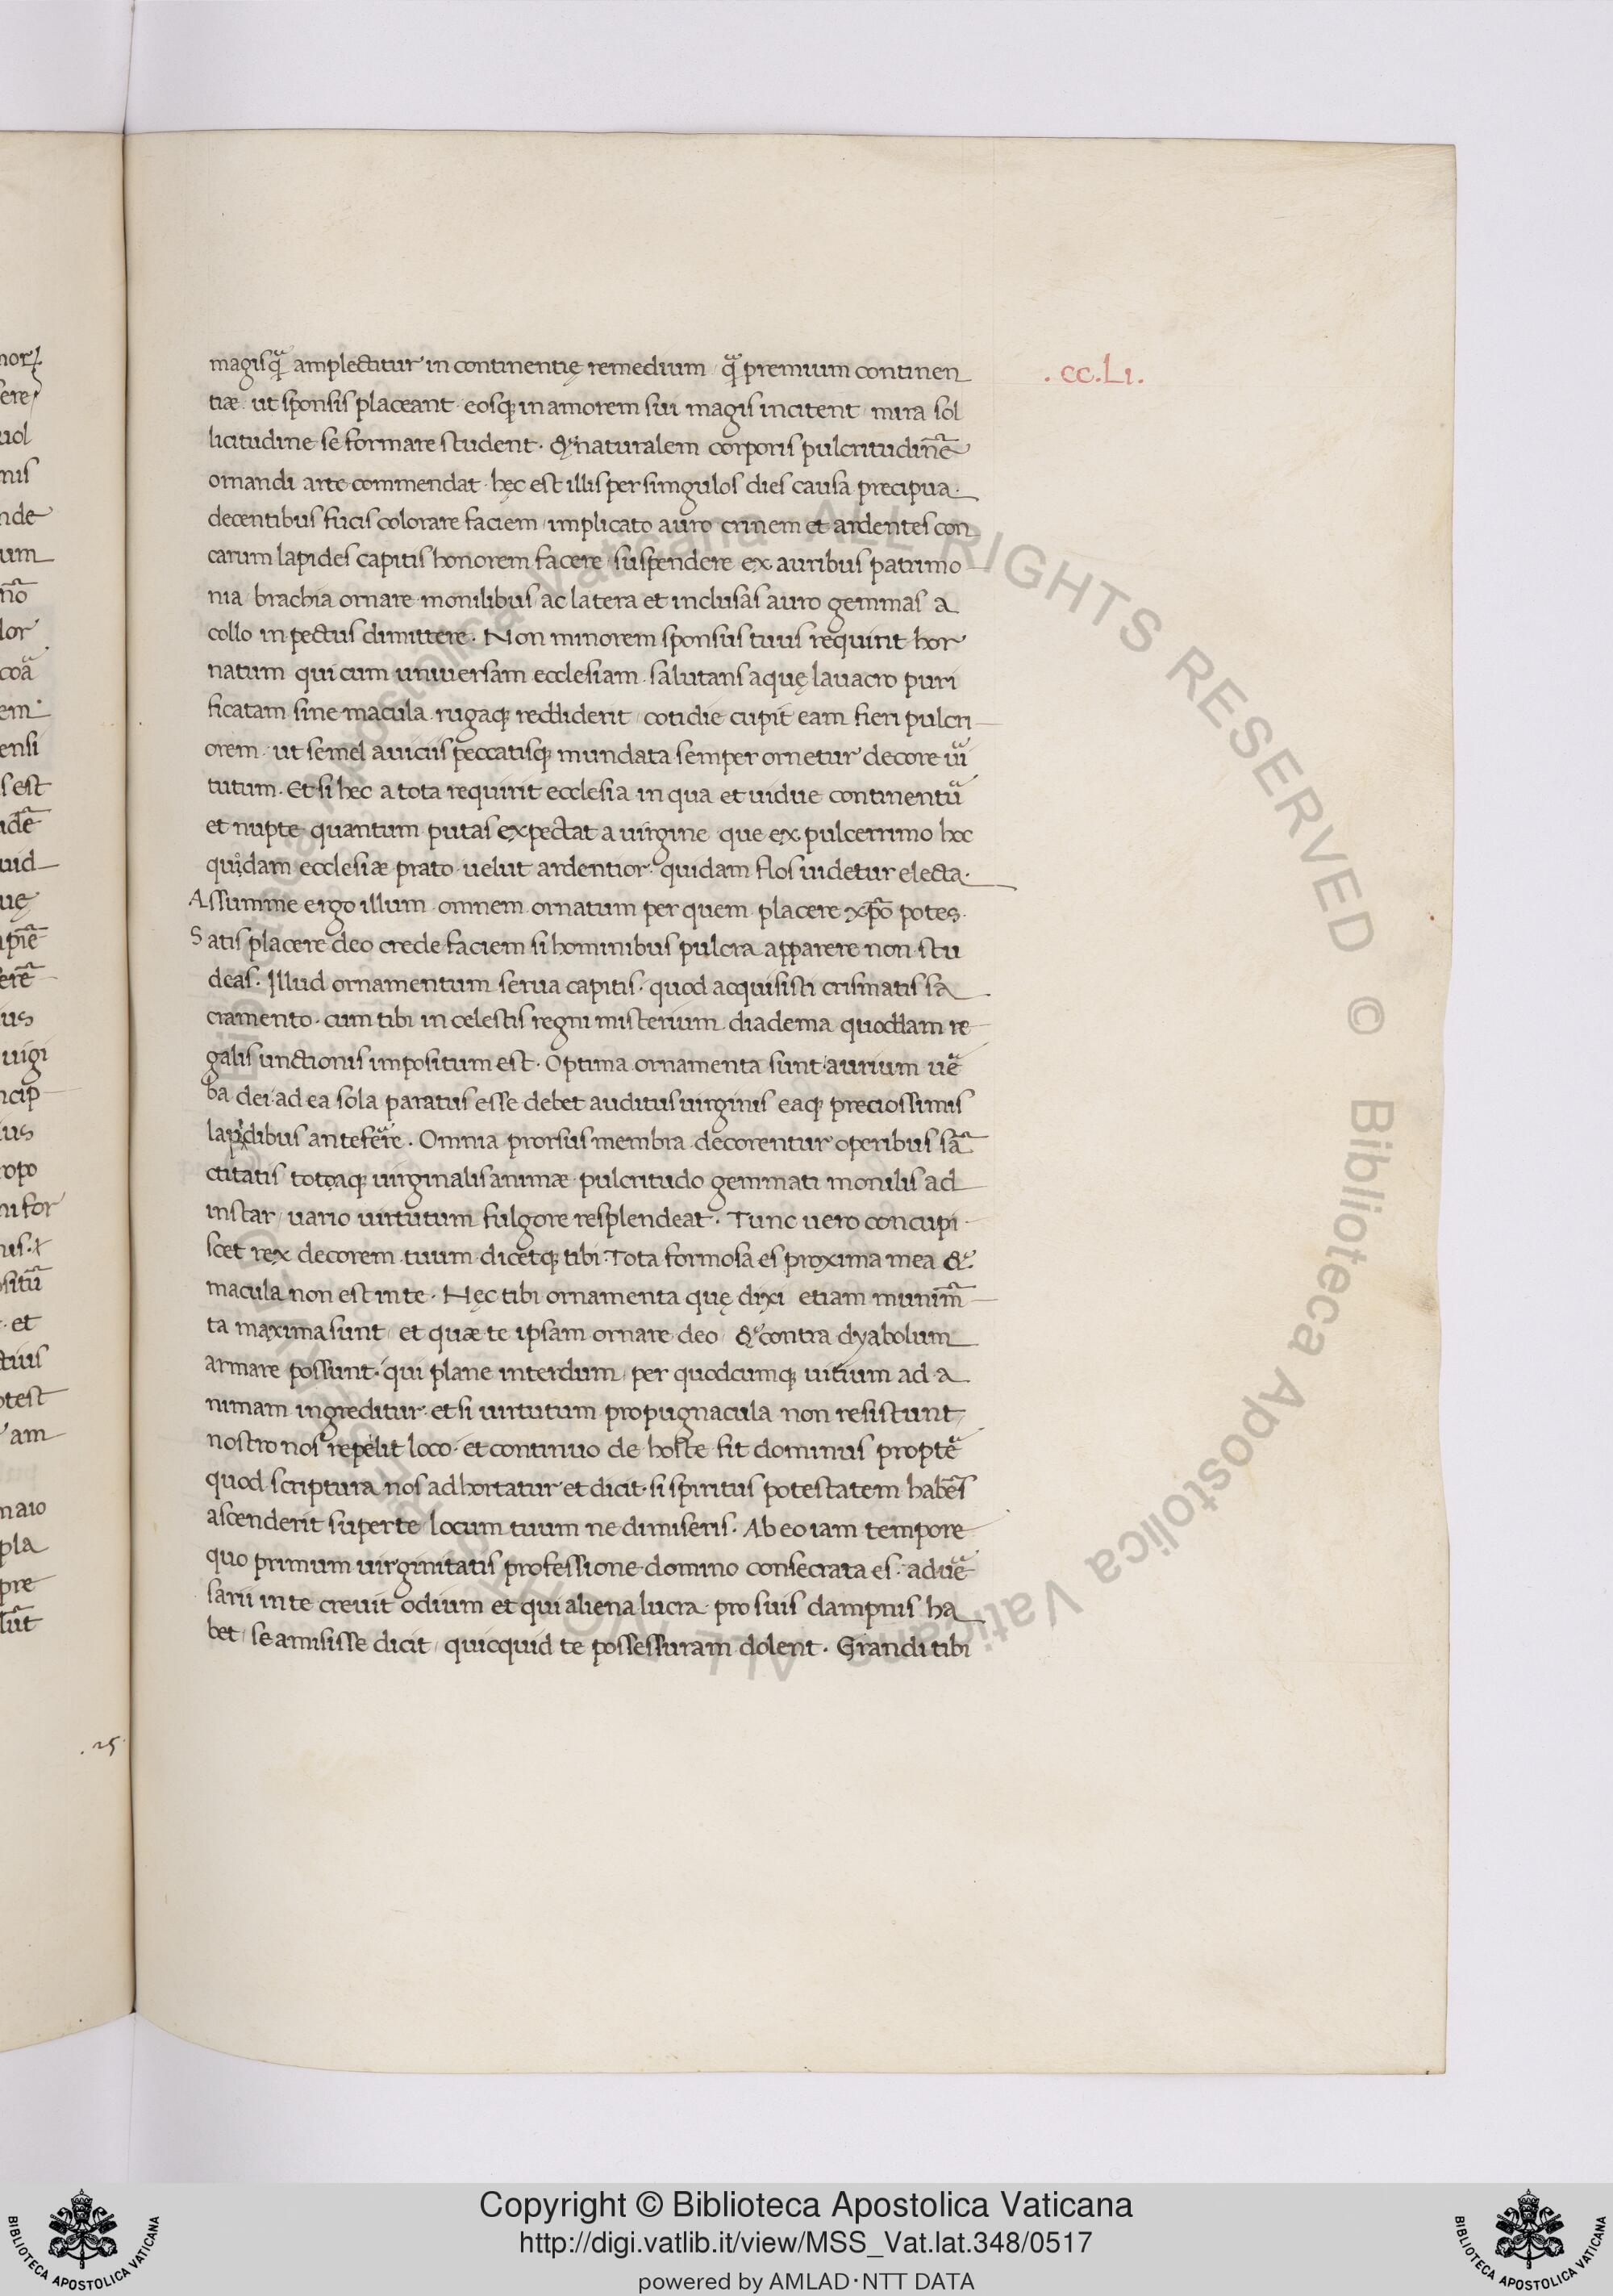 magisqᷓ amplectitur in continentię remedium / qᷓ premium continen
tiæ. ut sponsis placeant. eosqꝫ in amorem sui magis incitent / mira sol
licitudine se formare student. & naturalem corporis pulcritudinē
ornandi arte commendat. hęc est illis per simgulos dies causa precipua.
decentibus fucis colorare faciem / implicato auro crinem et ardentes con
carum lapides capitis honorem facere / suspendere ex auribus patrimo
nia / brachia ornare monilibus / ac latera et inclusas auro gemmas a
collo in pectus dimittere. Non minorem sponsus tuus requirit hor
natum qui cum uniuersam ecclesiam. salutans aquę lauacro puri
ficatam sine macula. rugaqꝫ reddiderit / cotidie cupit eam fieri pulcri
orem. ut semel a uiciis peccatisqꝫ mundata semper ornetur decore uiᷓ
tutum. Et si hec a tota requirit ecclesia in qua et uidue continentuᷓ
et nupte quantum putas expectat a uirgine que ex pulcerrimo hoc
quidam ecclesiæ prato. uelut ardentior. quidam flos uidetur electa.
Assumme ergo illum omnem ornatum per quem placere xp̄o potes.
Satis placere deo crede faciem si hominibus pulcra apparere non stu
deas. Illud ornamentum serua capitis. quod acquisisti crismatis sa
cramento. cum tibi in celestis regni misterium diadema quoddam re
galis unctionis impositum est. Optima ornamenta sunt aurium ueᷓ
ba dei. ad ea sola paratus esse debet auditus uirginis eaqꝫ preciossimis
lapidibus anteferre. Omnia prorsus membra decorentur operibus sā
ctitatis totaqꝫ uirginalis animæ pulcritudo gemmati monilis ad
instar / uario uirtutum fulgore resplendeat. Tunc uero concupi
scet rex decorem tuum dicetqꝫ tibi. Tota formosa es proxima mea &
macula non est in te. Hęc tibi ornamenta quę dixi etiam munim̄
ta maxima sunt / et quæ te ipsam ornare deo & contra dyabolum
armare possunt. qui plane interdum / per quodcumqꝫ uitium ad a
nimam ingreditur. et si uirtutum propugnacula non resistunt /
nostro nos repelit loco. et continuo de hoste fit dominus propteᷓ
quod scriptura nos adhortatur et dicit. si spiritus potestatem habēs
ascenderit super te / locum tuum ne dimiseris. Ab eo iam tempore
quo primum uirginitatis professione domino consecrata es. adueᷓ
sarii in te crevit odium et qui aliena lucra pro suis dampnis ha
bet / se amisisse dicit / quicquid te possessuram dolent. Grandi tibi
.cc.Li.
Copyright © Biblioteca Apostolica Vaticana
http://digi.vatlib.it/view/MSS_Vat.lat.348/0517
powered by AMLAD·NTT DATA